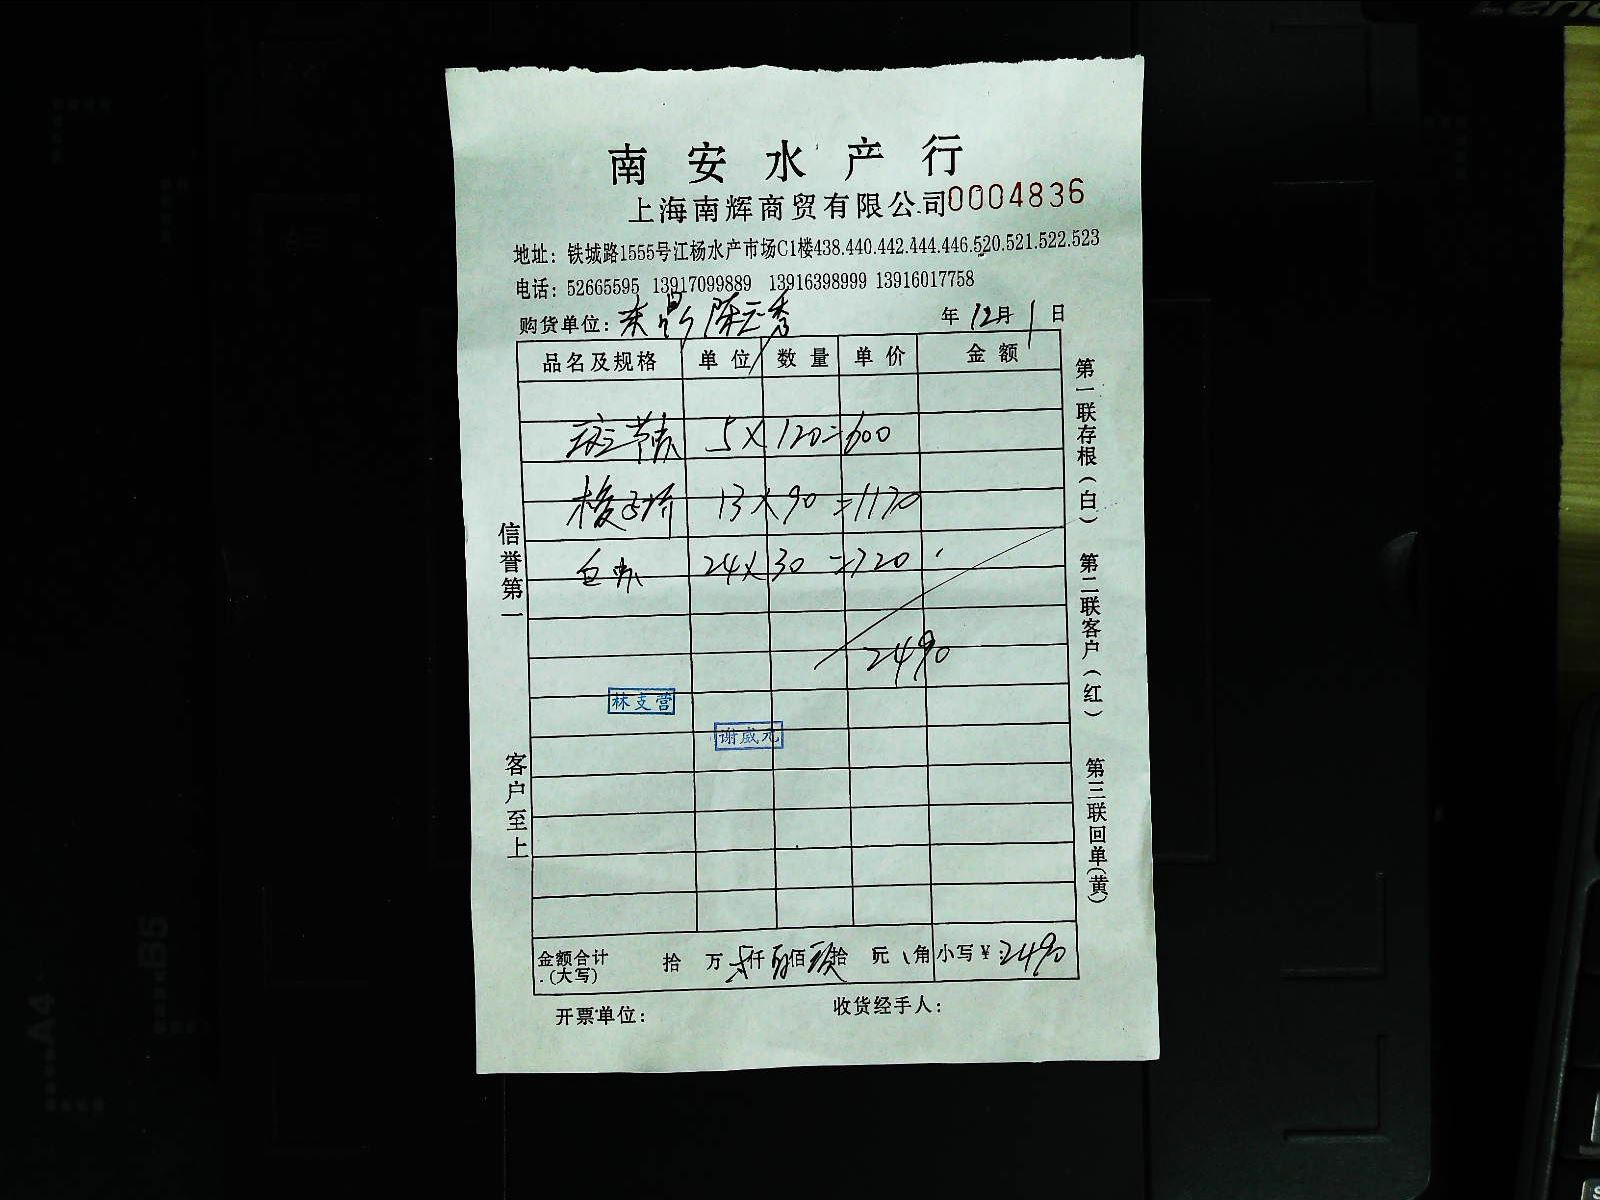 南安水产行
上海南辉商贸有限公司0004836
地址：铁城路1555号江杨水产市场C1楼438.440.442.444.446.520.521.522.523
电话：52665595 13917099889 13916398999 13916017758
购货单位：陈云秀 年12月1日
品名及规格 单位 数量 单价 金额
斑节 5×120=600
梭子 13×90=1170
白 24×30=720
2490
林支营
谢威元
金额合计 拾 万 仟 佰 拾 元 角 小写￥：2490
（大写）
开票单位： 收货经手人：
信誉第一 客户至上
第一联存根（白） 第二联客户（红） 第三联回单（黄）